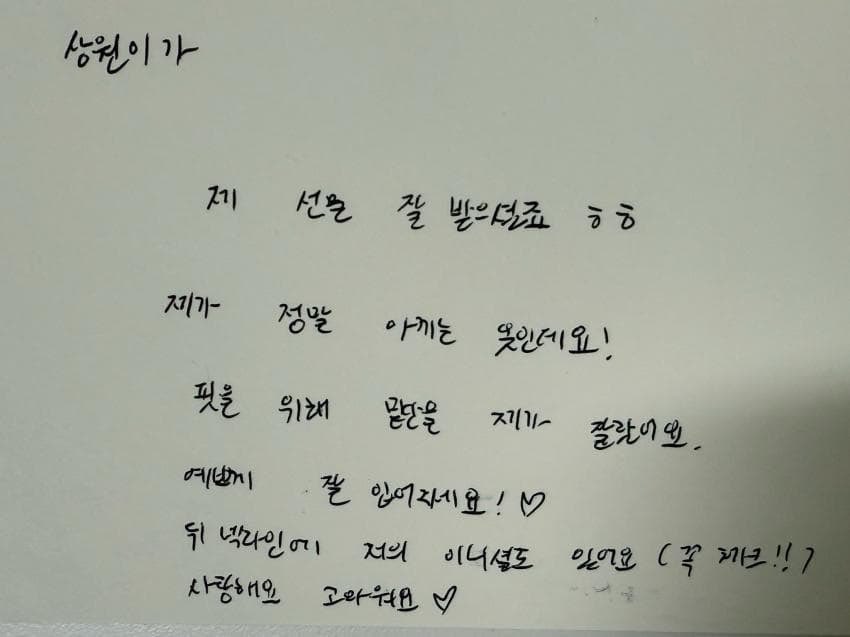 상원이가
제 선물 잘 받으셨죠 ㅎㅎ
제가 정말 아끼는 옷인데요!
핏을 위해 밑단을 제가 잘랐어요.
예쁘게 잘 입어주세요! ♡
뒤 넥라인에 저의 이니셜도 있어요 (꼭 체크!!)
사랑해요 고마워요 ♡